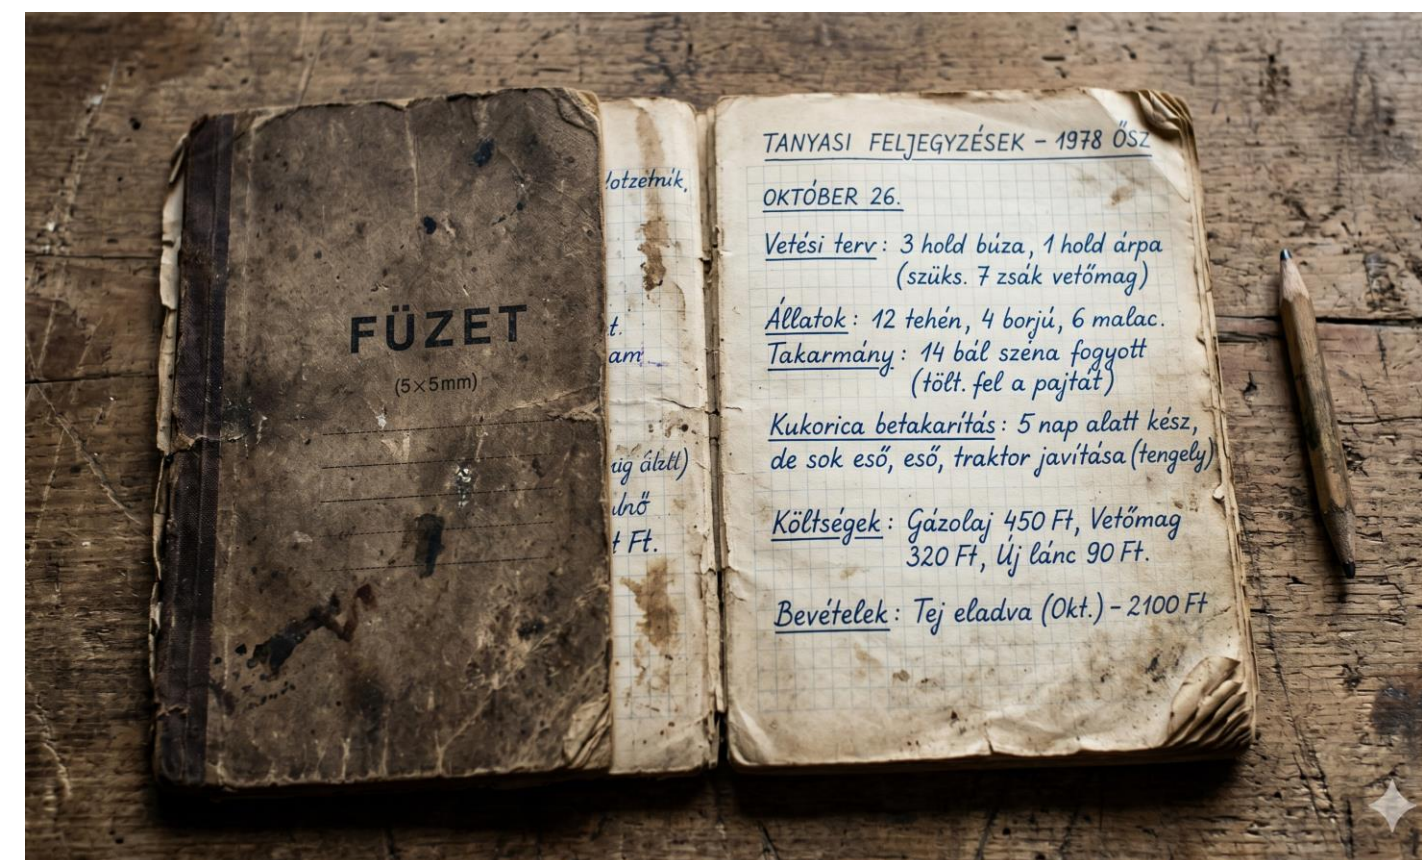 FÜZET
(5×5mm)
t.
am
t Ft.
TANYASI FELJEGYZÉSEK – 1978 ŐSZ
OKTÓBER 26.
Vetési terv: 3 hold búza, 1 hold árpa
(szüks. 7 zsák vetőmag)
Állatok: 12 tehén, 4 borjú, 6 malac.
Takarmány: 14 bál széna fogyott
(tölt. fel a pajtát)
Kukorica betakarítás: 5 nap alatt kész,
de sok eső, eső, traktor javítása (tengely)
Költségek: Gázolaj 450 Ft, Vetőmag
320 Ft, Új lánc 90 Ft.
Bevételek: Tej eladva (Okt.) – 2100 Ft